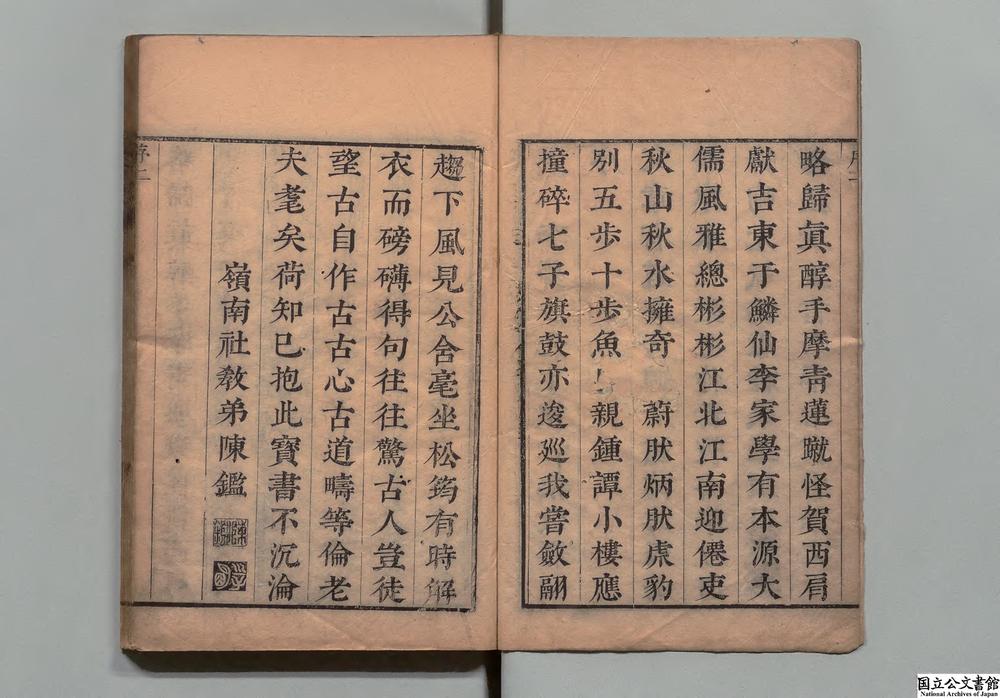 略歸眞醇手摩青蓮蹴怪賀西肩
獻吉東于鱗仙李家學有本源大
儒風雅總彬彬江北江南迎僊吏
秋山秋水擁奇 蔚肰炳肰虎豹
别五歩十歩魚 親鍾譚小樓應
撞碎七子旗鼓亦逡廵我嘗斂翮
趨下風見公舍毫坐松筠有時解
衣而磅礴得句往往驚古人豈徒
望古自作古古心古道疇等倫老
夫耄矣荷知已抱此寶書不沉淪
嶺南社教弟陳鑑
序二
国立公文書館
National Archives of Japan